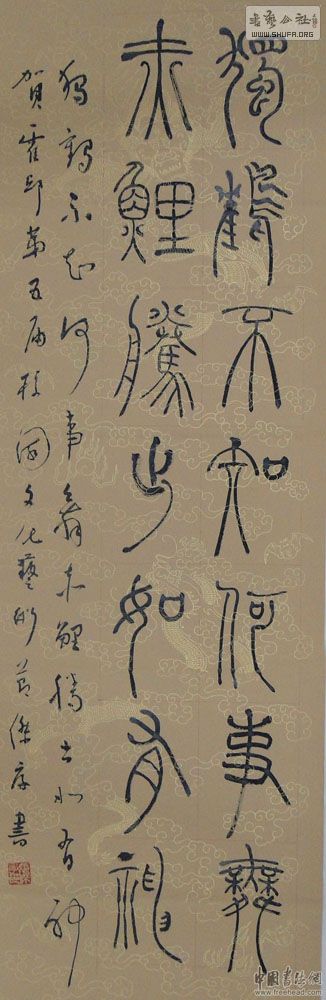 獨鶴不知何事舞
赤鯉騰出如有神
獨鶴不知何事舞赤鯉騰出如有神
賀霍邱第五届校園文化藝術節傑書
書藝公社
WWW.SHUFA.ORG
中国書法網
www.freehead.com